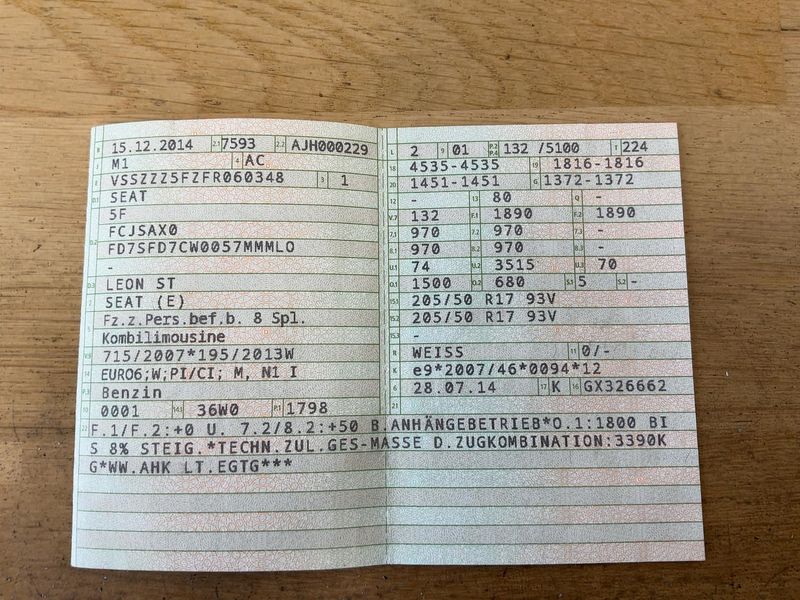 B 15.12.2014 2.1 7593 2.2 AJH000229
J M1 4 AC
E VSSZZZ5FZFR060348 3 1
D.1 SEAT
5F
FCJSAX0
D.2 FD7SFD7CW0057MMMLO
-
D.3 LEON ST
2 SEAT (E)
Fz.z.Pers.bef.b. 8 Spl.
5 Kombilimousine
V.9 715/2007*195/2013W
14 EURO6;W;PI/CI; M, N1 I
P.3 Benzin
10 0001 14.1 36W0 P.1 1798
L 2 9 01 P.2 P.4 132 /5100 T 224
18 4535-4535 19 1816-1816
20 1451-1451 G 1372-1372
12 - 13 80 Q -
V.7 132 F.1 1890 F.2 1890
7.1 970 7.2 970 7.3 -
8.1 970 8.2 970 8.3 -
U.1 74 U.2 3515 U.3 70
O.1 1500 O.2 680 S.1 5 S.2 -
15.1 205/50 R17 93V
15.2 205/50 R17 93V
15.3 -
R WEISS 11 0/-
K e9*2007/46*0094*12
6 28.07.14 17 K 16 GX326662
21
22 F.1/F.2:+0 U. 7.2/8.2:+50 B.ANHÄNGEBETRIEB*O.1:1800 BI
S 8% STEIG.*TECHN.ZUL.GES-MASSE D.ZUGKOMBINATION:3390K
G*WW.AHK LT.EGTG***